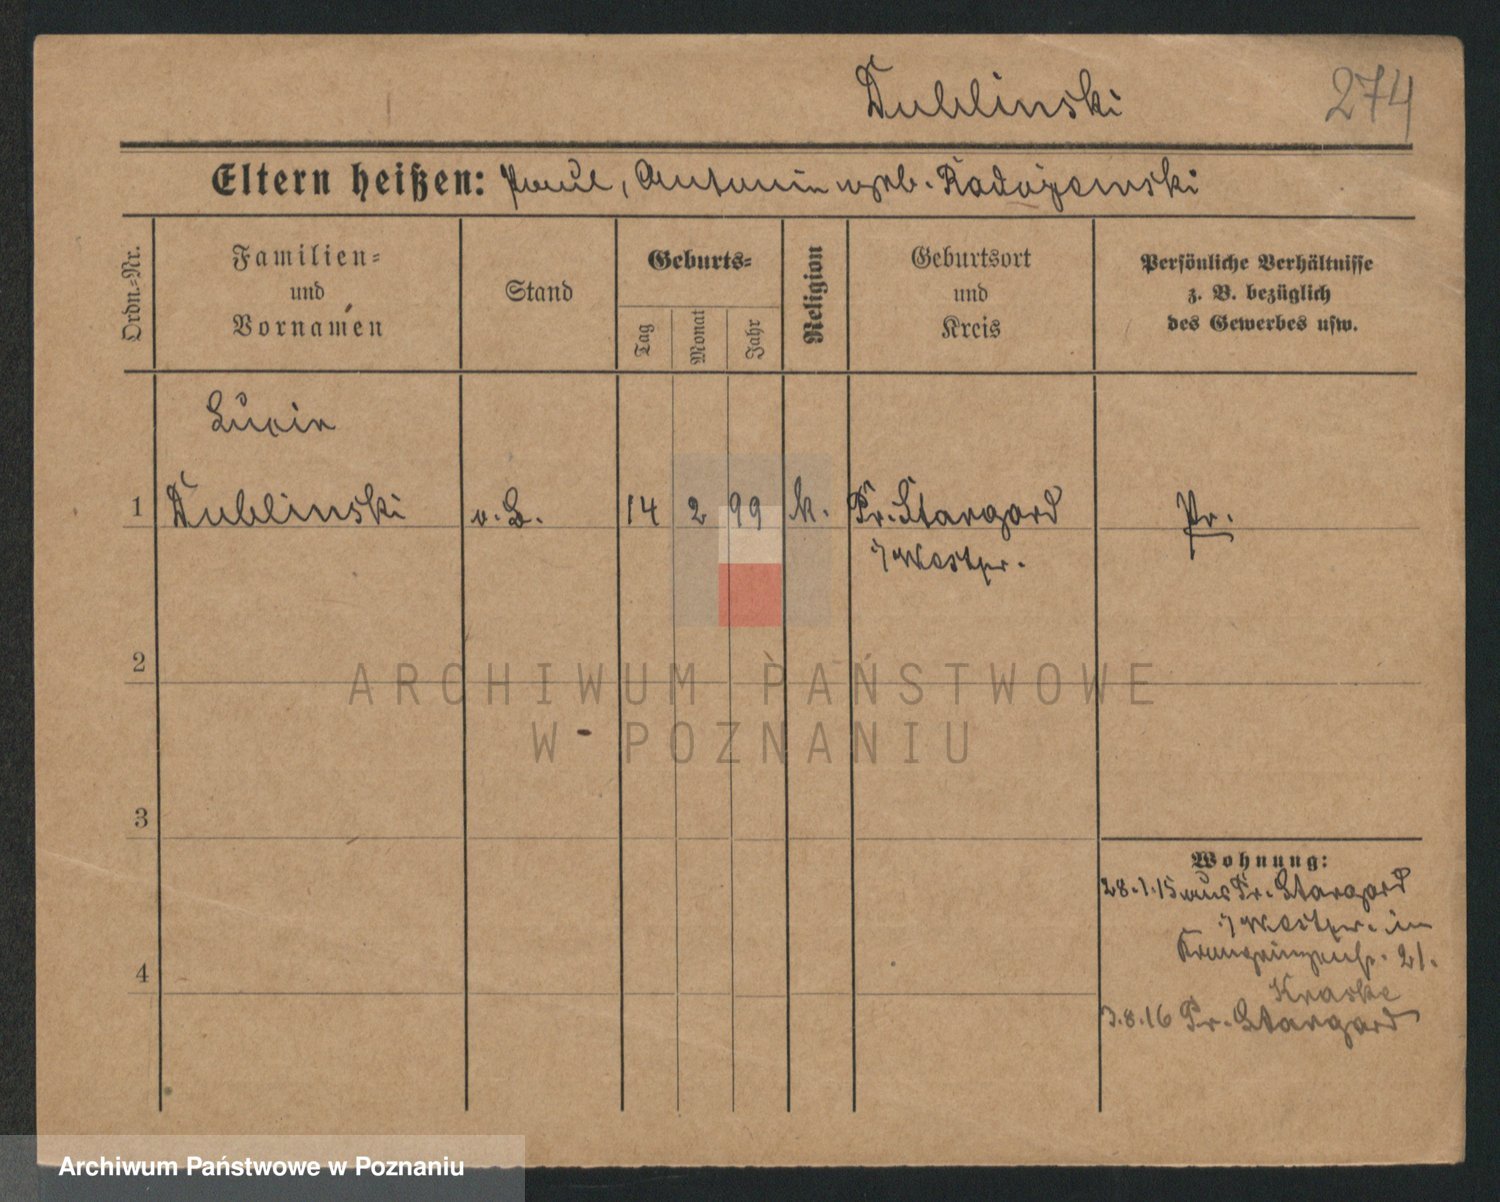 Dublinski
274
Eltern heißen: Paul, Antonie geb. Radojewski
Ordn.-Nr.
Familien-
und
Vornamen
Stand
Geburts-
Tag
Monat
Jahr
Religion
Geburtsort
und
Kreis
Persönliche Verhältnisse
z. B. bezüglich
des Gewerbes usw.
Lucie
1 Dublinski o. B. 14 2 99 k. Pr. Stargard Pr.
i/ Westpr.
2
3
4
Wohnung:
28.1.15 aus Pr. Stargard
i/ Westpr. in
Kronprinzenstr. 21.
Kraske
3.8.16 Pr. Stargard
ARCHIWUM PAŃSTWOWE
W POZNANIU
Archiwum Państwowe w Poznaniu